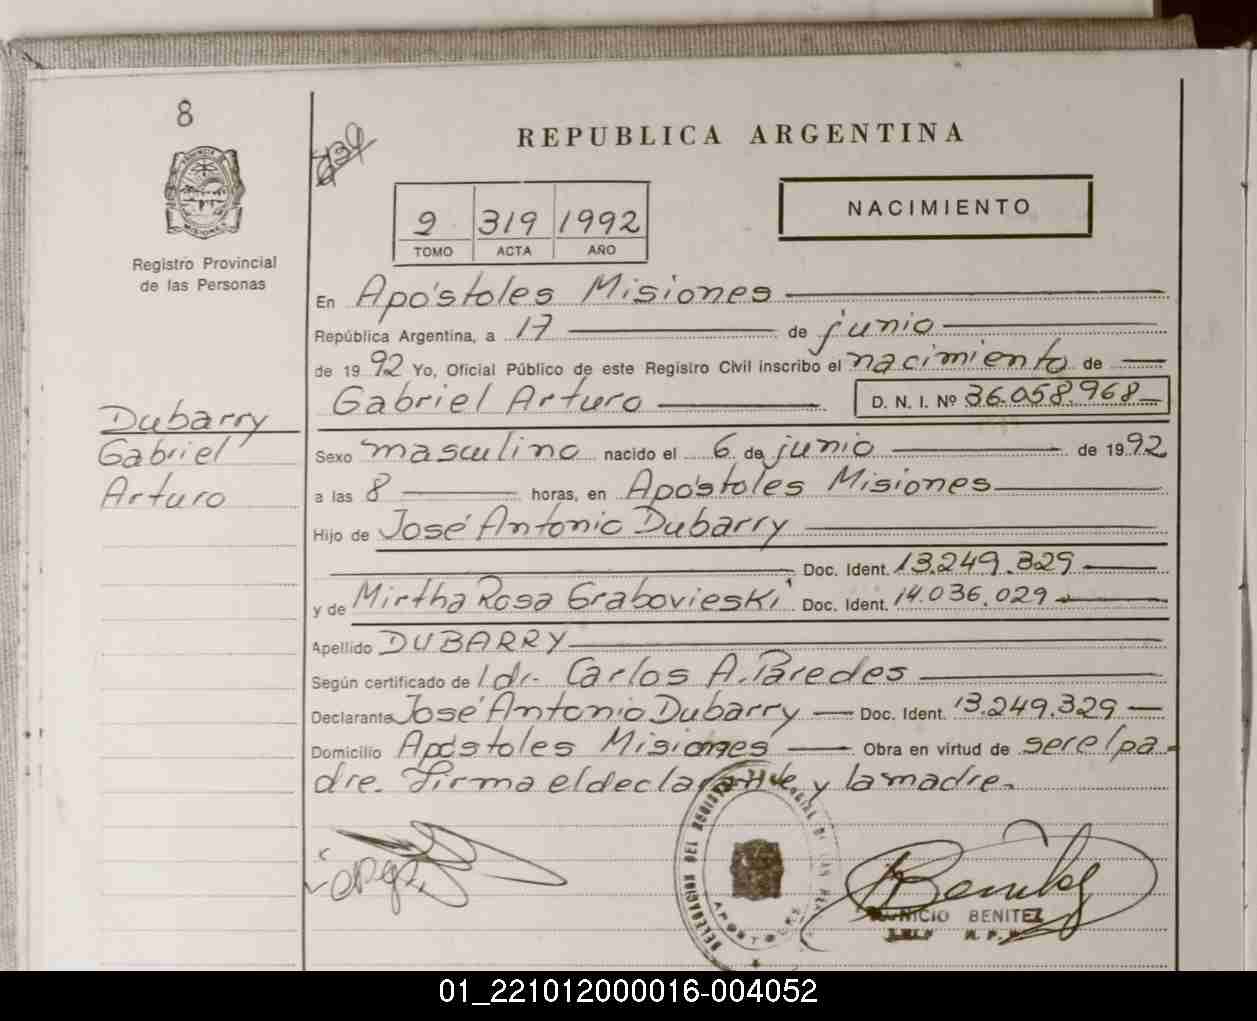 8
REPUBLICA ARGENTINA
NACIMIENTO
2 319 1992
TOMO ACTA AÑO
PROVINCIA DE MISIONES
Registro Provincial
de las Personas
Dubarry
Gabriel
Arturo
En Apóstoles Misiones
República Argentina, a 17 de junio
de 1992 Yo, Oficial Público de este Registro Civil inscribo el nacimiento de
Gabriel Arturo D. N. I. Nº 36.058.968
Sexo masculino nacido el 6 de junio de 1992
a las 8 horas, en Apóstoles Misiones
Hijo de José Antonio Dubarry
Doc. Ident. 13.249.329
y de Mirtha Rosa Grabovieski Doc. Ident. 14.036.029
Apellido DUBARRY
Según certificado de l dr. Carlos A. Paredes
Declarante José Antonio Dubarry Doc. Ident. 13.249.329
Domicilio Apóstoles Misiones Obra en virtud de ser el pa-
dre. Firma el declarante y la madre.
DELEGACION DEL REGISTRO PROVINCIAL DE LAS
APOSTOLES
BENITEZ
01_221012000016-004052